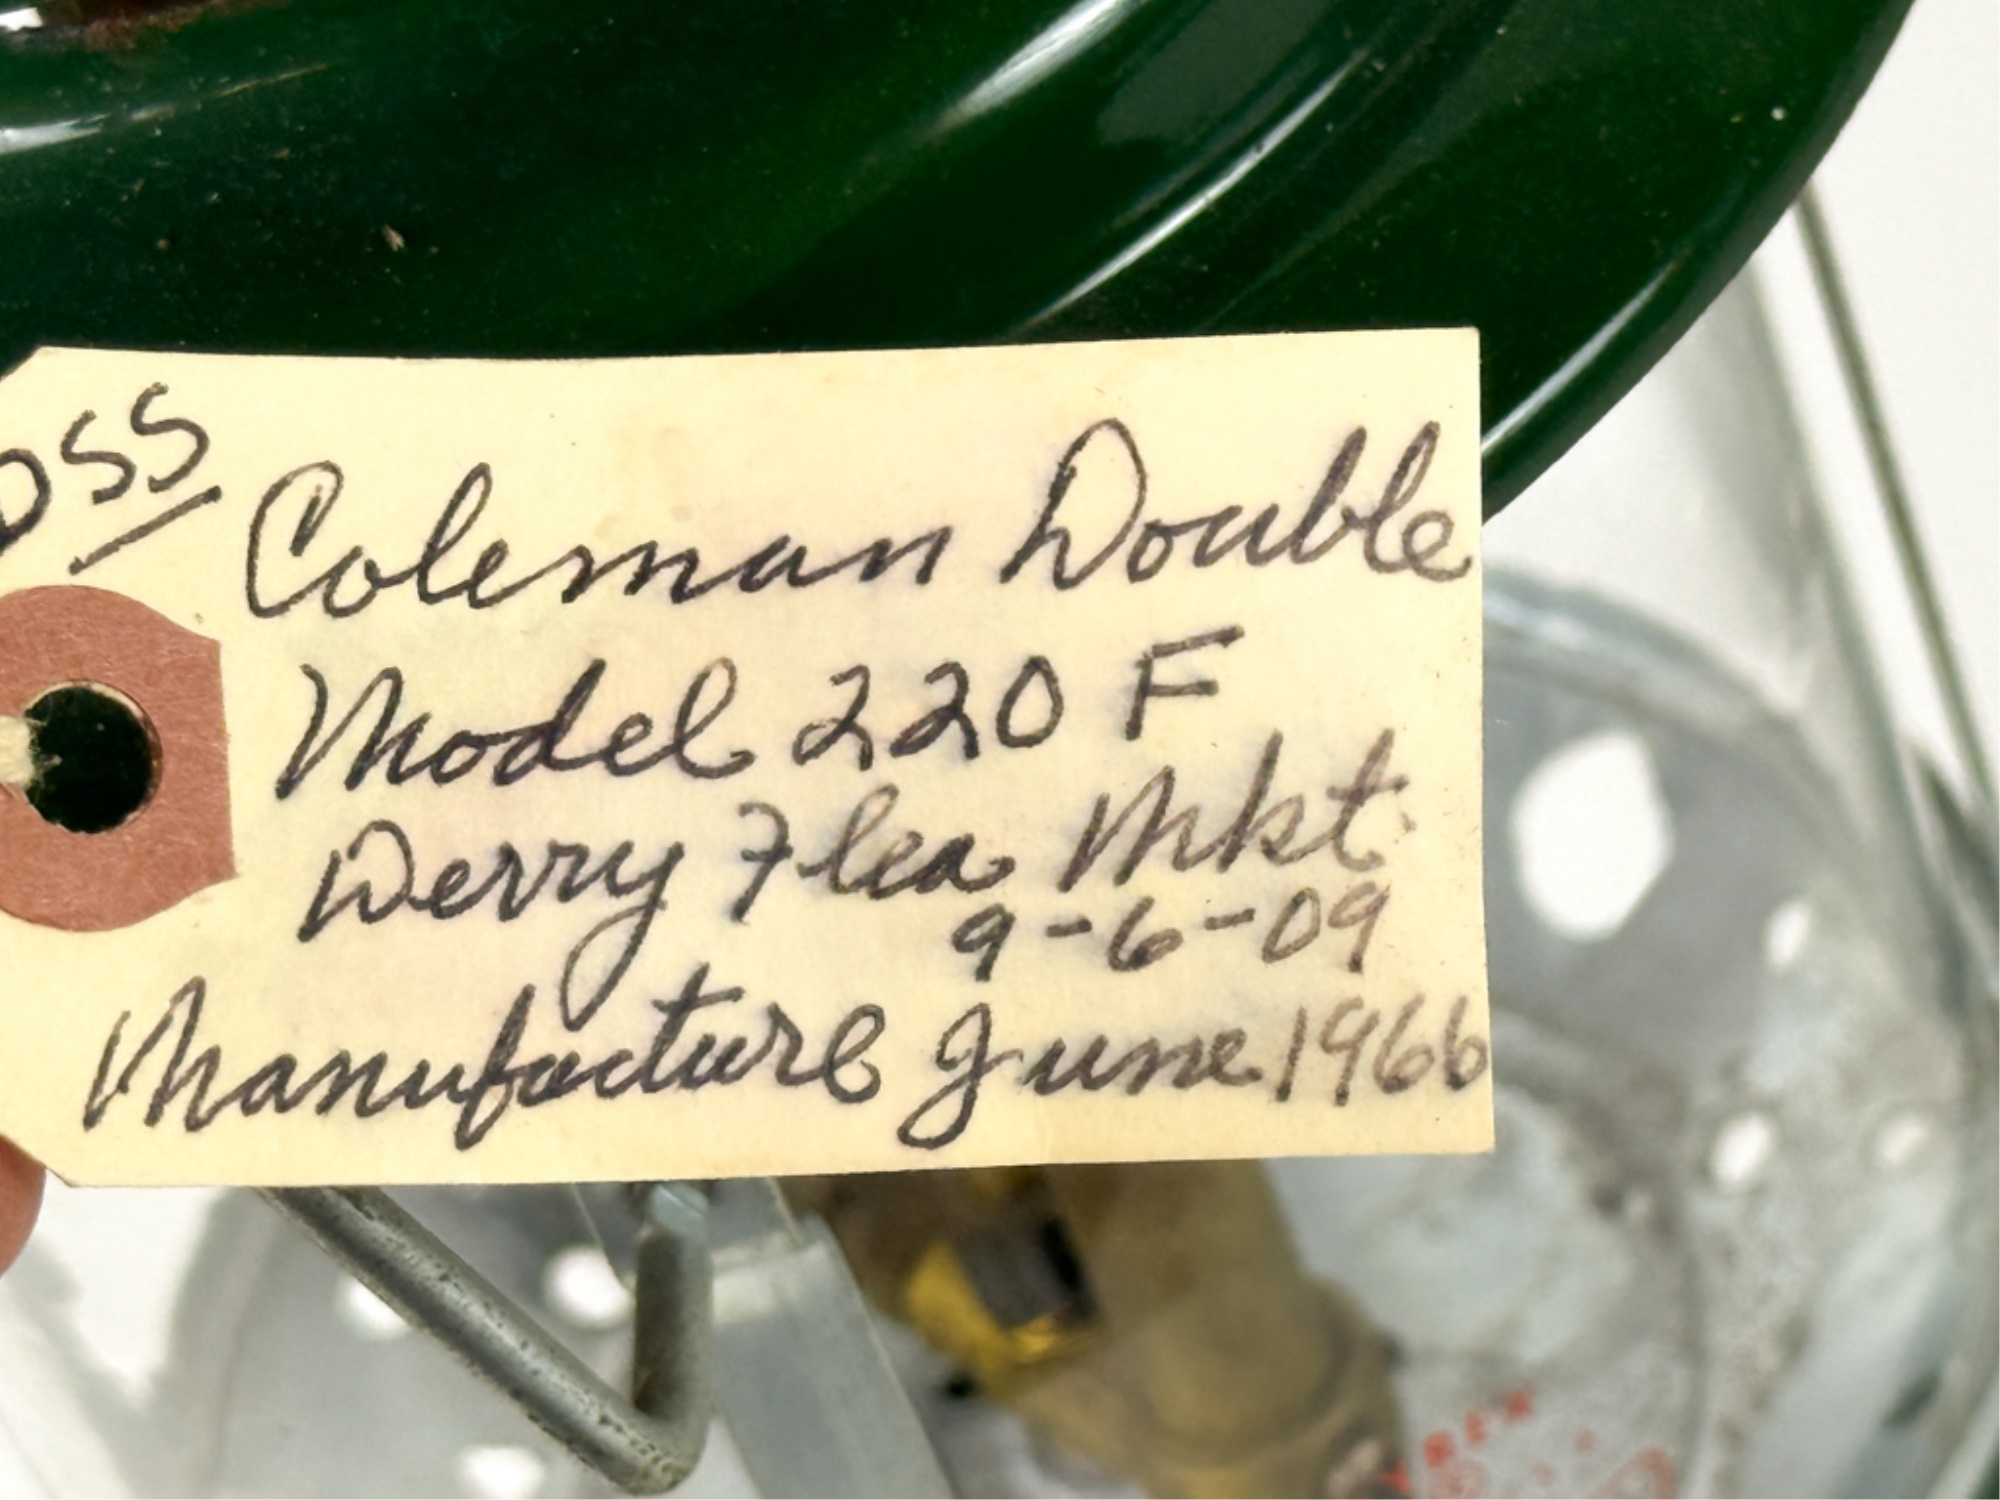 Coleman Double
Model 220 F
Derry Flea Mkt.
9-6-09
Manufacture June 1966